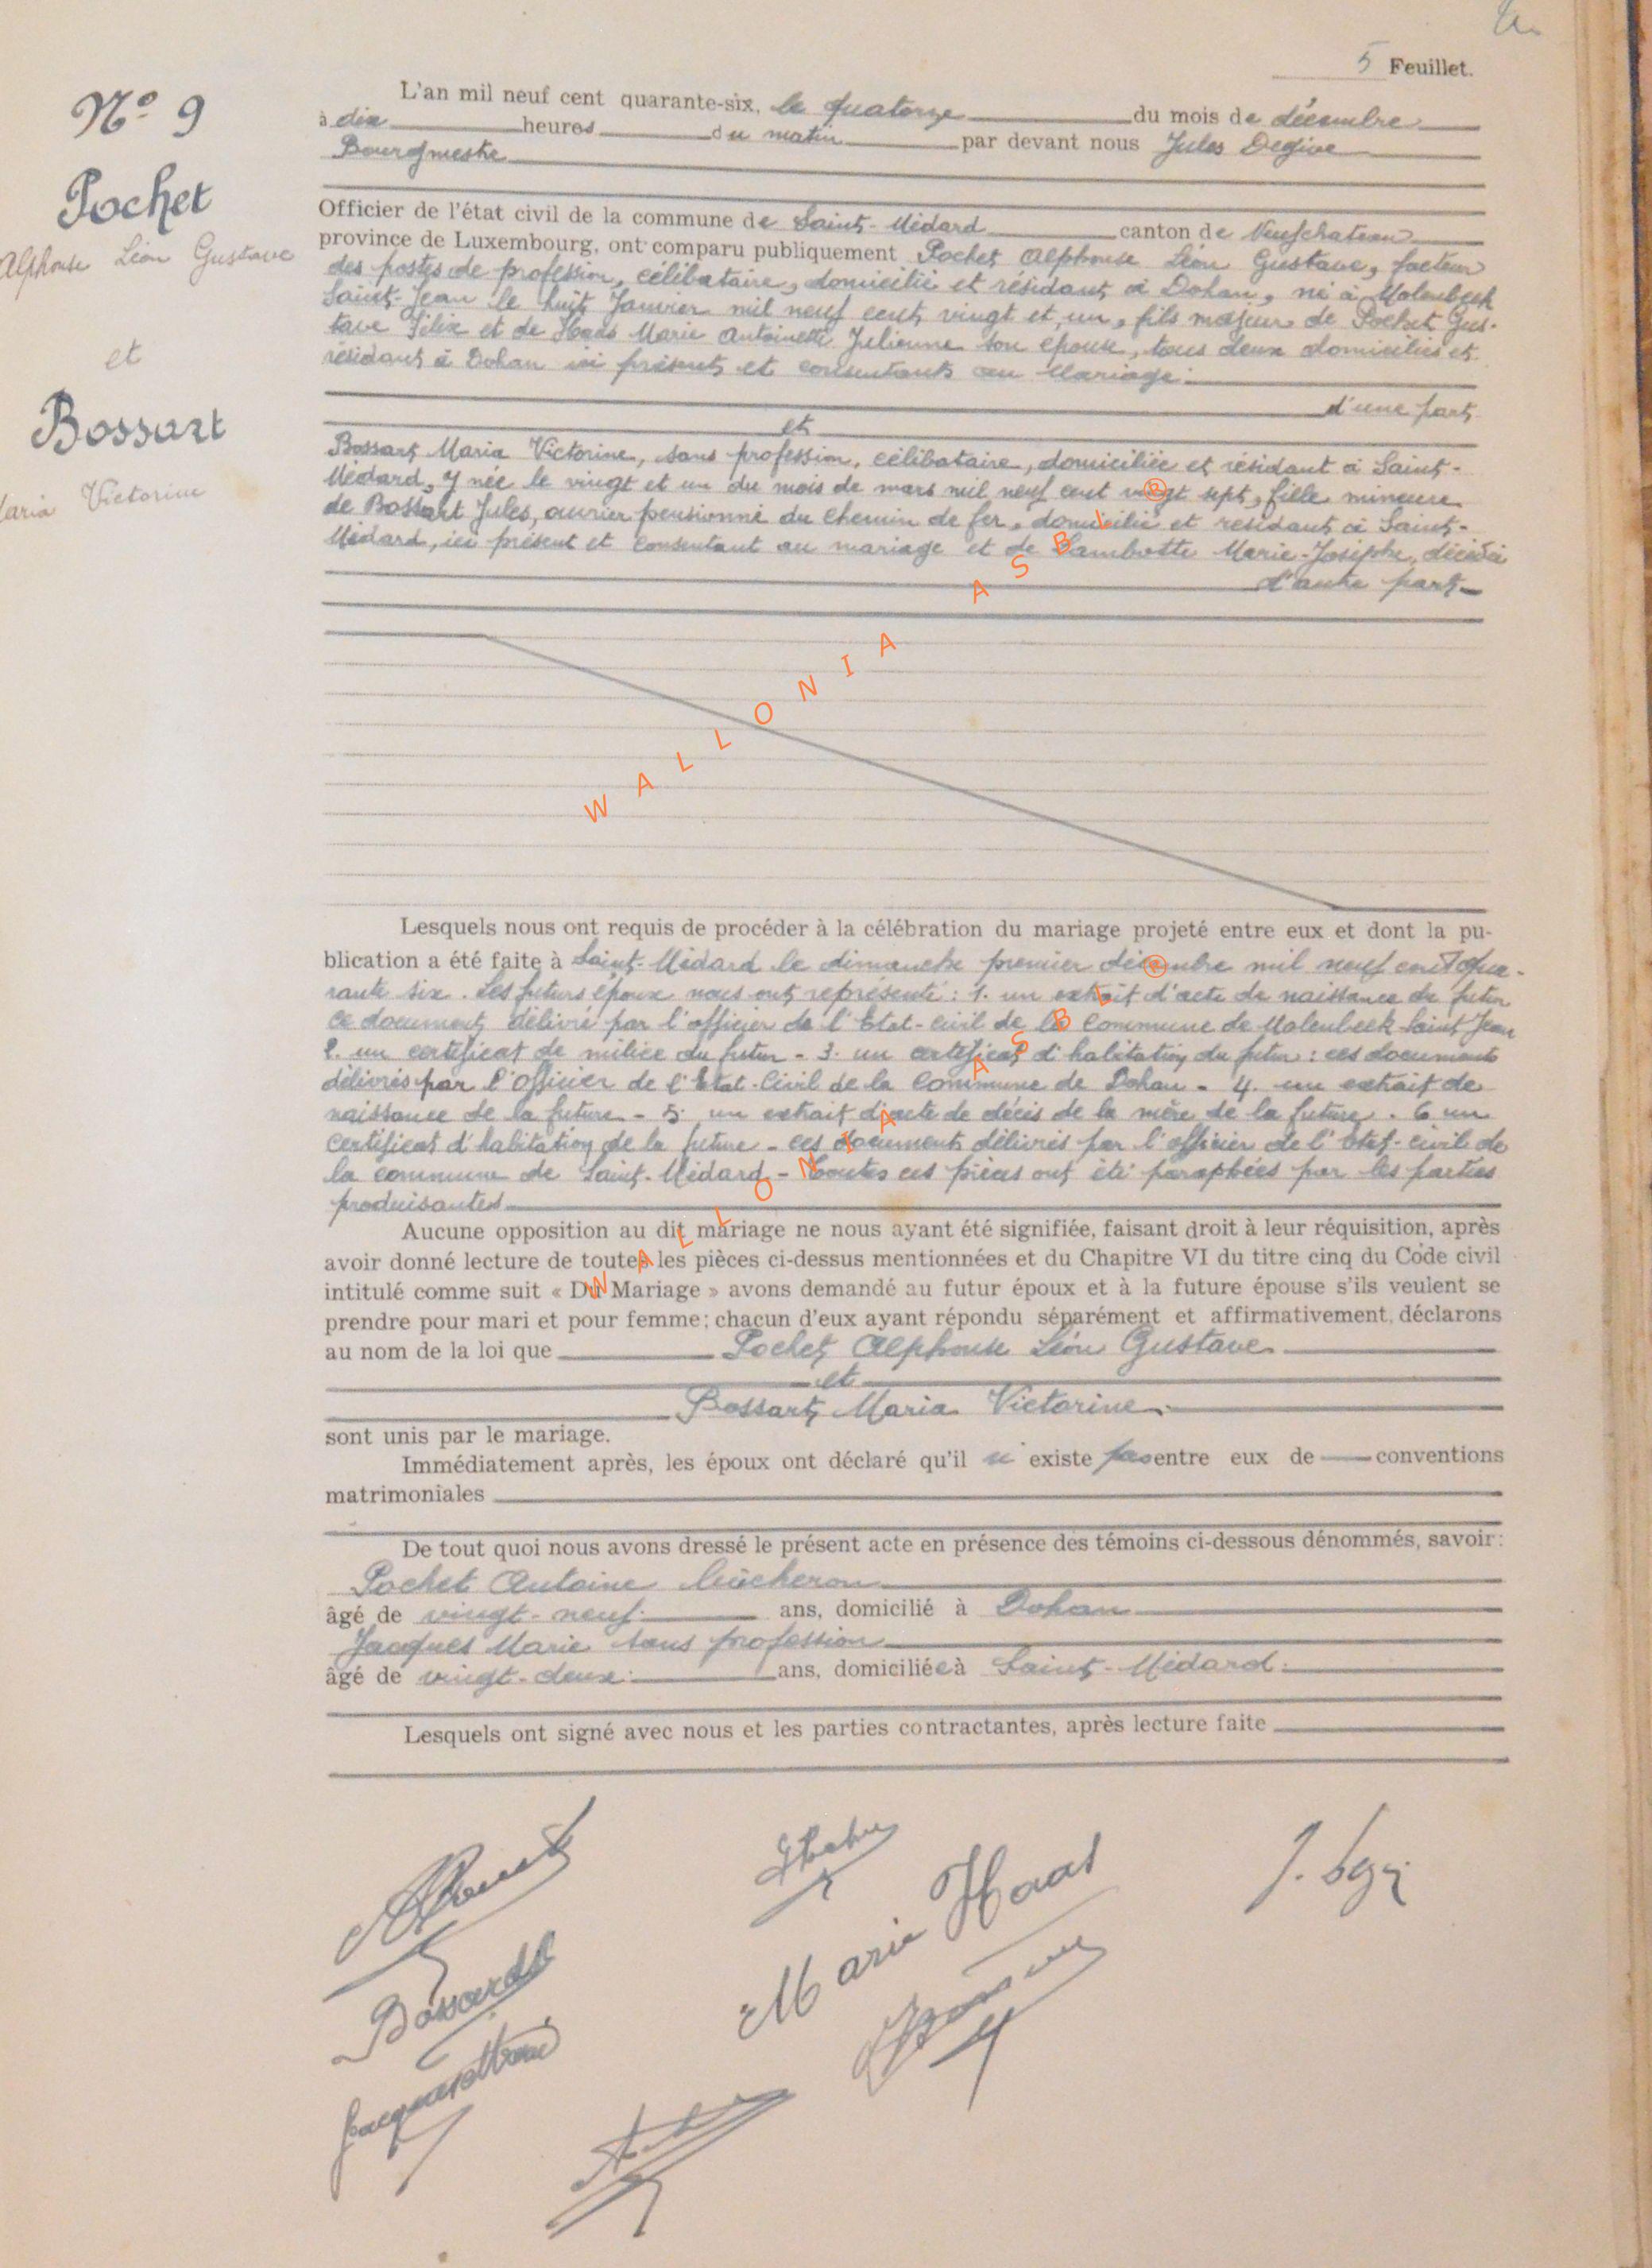 5 Feuillet.
N° 9
Pochet
Alphonse Léon Gustave
et
Bossart
Maria Victorine
L'an mil neuf cent quarante-six, le quatorze du mois de décembre
à dix heures du matin par devant nous Jules Degive
Bourgmestre
Officier de l'état civil de la commune de Saint-Médard canton de Neufchateau
province de Luxembourg, ont comparu publiquement Pochet Alphonse Léon Gustave, facteur
des postes de profession, célibataire, domicilié et résidant à Dohan, né à Molenbeek
Saint-Jean le huit Janvier mil neuf cent vingt et un, fils majeur de Pochet Gus-
tave Félix et de Haas Marie Antoinette Julienne son épouse, tous deux domiciliés et
résidant à Dohan ici présents et consentants au mariage
d'une part
et
Bossart Maria Victorine, sans profession, célibataire, domiciliée et résidant à Saint-
Médard, y née le vingt et un du mois de mars mil neuf cent vingt sept, fille mineure
de Bossart Jules, ouvrier pensionné du chemin de fer, domicilié et résidant à Saint-
Médard, ici présent et consentant au mariage et de Lambotte Marie-Josèphe, décédée
d'autre part
WALLONIA ASBL ®
Lesquels nous ont requis de procéder à la célébration du mariage projeté entre eux et dont la pu-
blication a été faite à Saint-Médard le dimanche premier décembre mil neuf cent qua-
rante six. Les futurs époux nous ont représenté : 1. un extrait d'acte de naissance du futur
ce document délivré par l'officier de l'Etat-civil de la commune de Molenbeek Saint Jean
2. un certificat de milice du futur - 3. un certificat d'habitation du futur : ces documents
délivrés par l'officier de l'Etat-Civil de la Commune de Dohan - 4. un extrait de
naissance de la future - 5. un extrait d'acte de décès de la mère de la future. 6 un
certificat d'habitation de la future - ces documents délivrés par l'officier de l'état-civil de
la commune de Saint-Médard - Toutes ces pièces ont été paraphées par les parties
produisantes
WALLONIA ASBL ®
Aucune opposition au dit mariage ne nous ayant été signifiée, faisant droit à leur réquisition, après
avoir donné lecture de toutes les pièces ci-dessus mentionnées et du Chapitre VI du titre cinq du Code civil
intitulé comme suit « Du Mariage » avons demandé au futur époux et à la future épouse s'ils veulent se
prendre pour mari et pour femme; chacun d'eux ayant répondu séparément et affirmativement, déclarons
au nom de la loi que Pochet Alphonse Léon Gustave
et
Bossart Maria Victorine
sont unis par le mariage.
Immédiatement après, les époux ont déclaré qu'il n'existe pas entre eux de conventions
matrimoniales
De tout quoi nous avons dressé le présent acte en présence des témoins ci-dessous dénommés, savoir:
Pochet Antoine bûcheron
âgé de vingt-neuf ans, domicilié à Dohan
Jacques Marie sans profession
âgé de vingt-deux ans, domiciliée à Saint-Médard
Lesquels ont signé avec nous et les parties contractantes, après lecture faite
Marie Haas